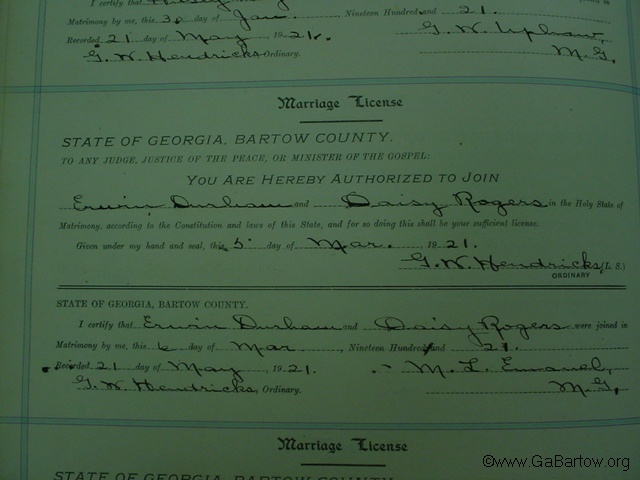 I certify that
joined in
Matrimony by me, this 30 day of Jan. Nineteen Hundred and 21.
Recorded 21 day of May 1921. G. W. Upshaw,
G. W. Hendricks Ordinary. M.G.
Marriage License
STATE OF GEORGIA, BARTOW COUNTY.
TO ANY JUDGE, JUSTICE OF THE PEACE, OR MINISTER OF THE GOSPEL:
YOU ARE HEREBY AUTHORIZED TO JOIN
Erwin Durham and Daisy Rogers in the Holy State of
Matrimony, according to the Constitution and laws of this State, and for so doing this shall be your sufficient license.
Given under my hand and seal, this 5 day of Mar. 1921.
G. W. Hendricks (L. S.)
ORDINARY
STATE OF GEORGIA, BARTOW COUNTY.
I certify that Erwin Durham and Daisy Rogers were joined in
Matrimony by me, this 6 day of Mar, Nineteen Hundred and 21.
Recorded 21 day of May 1921. M. L. Emmanel,
G. W. Hendricks, Ordinary. M.G.
Marriage License
STATE OF GEORGIA, BARTOW COUNTY.
©www.GaBartow.org